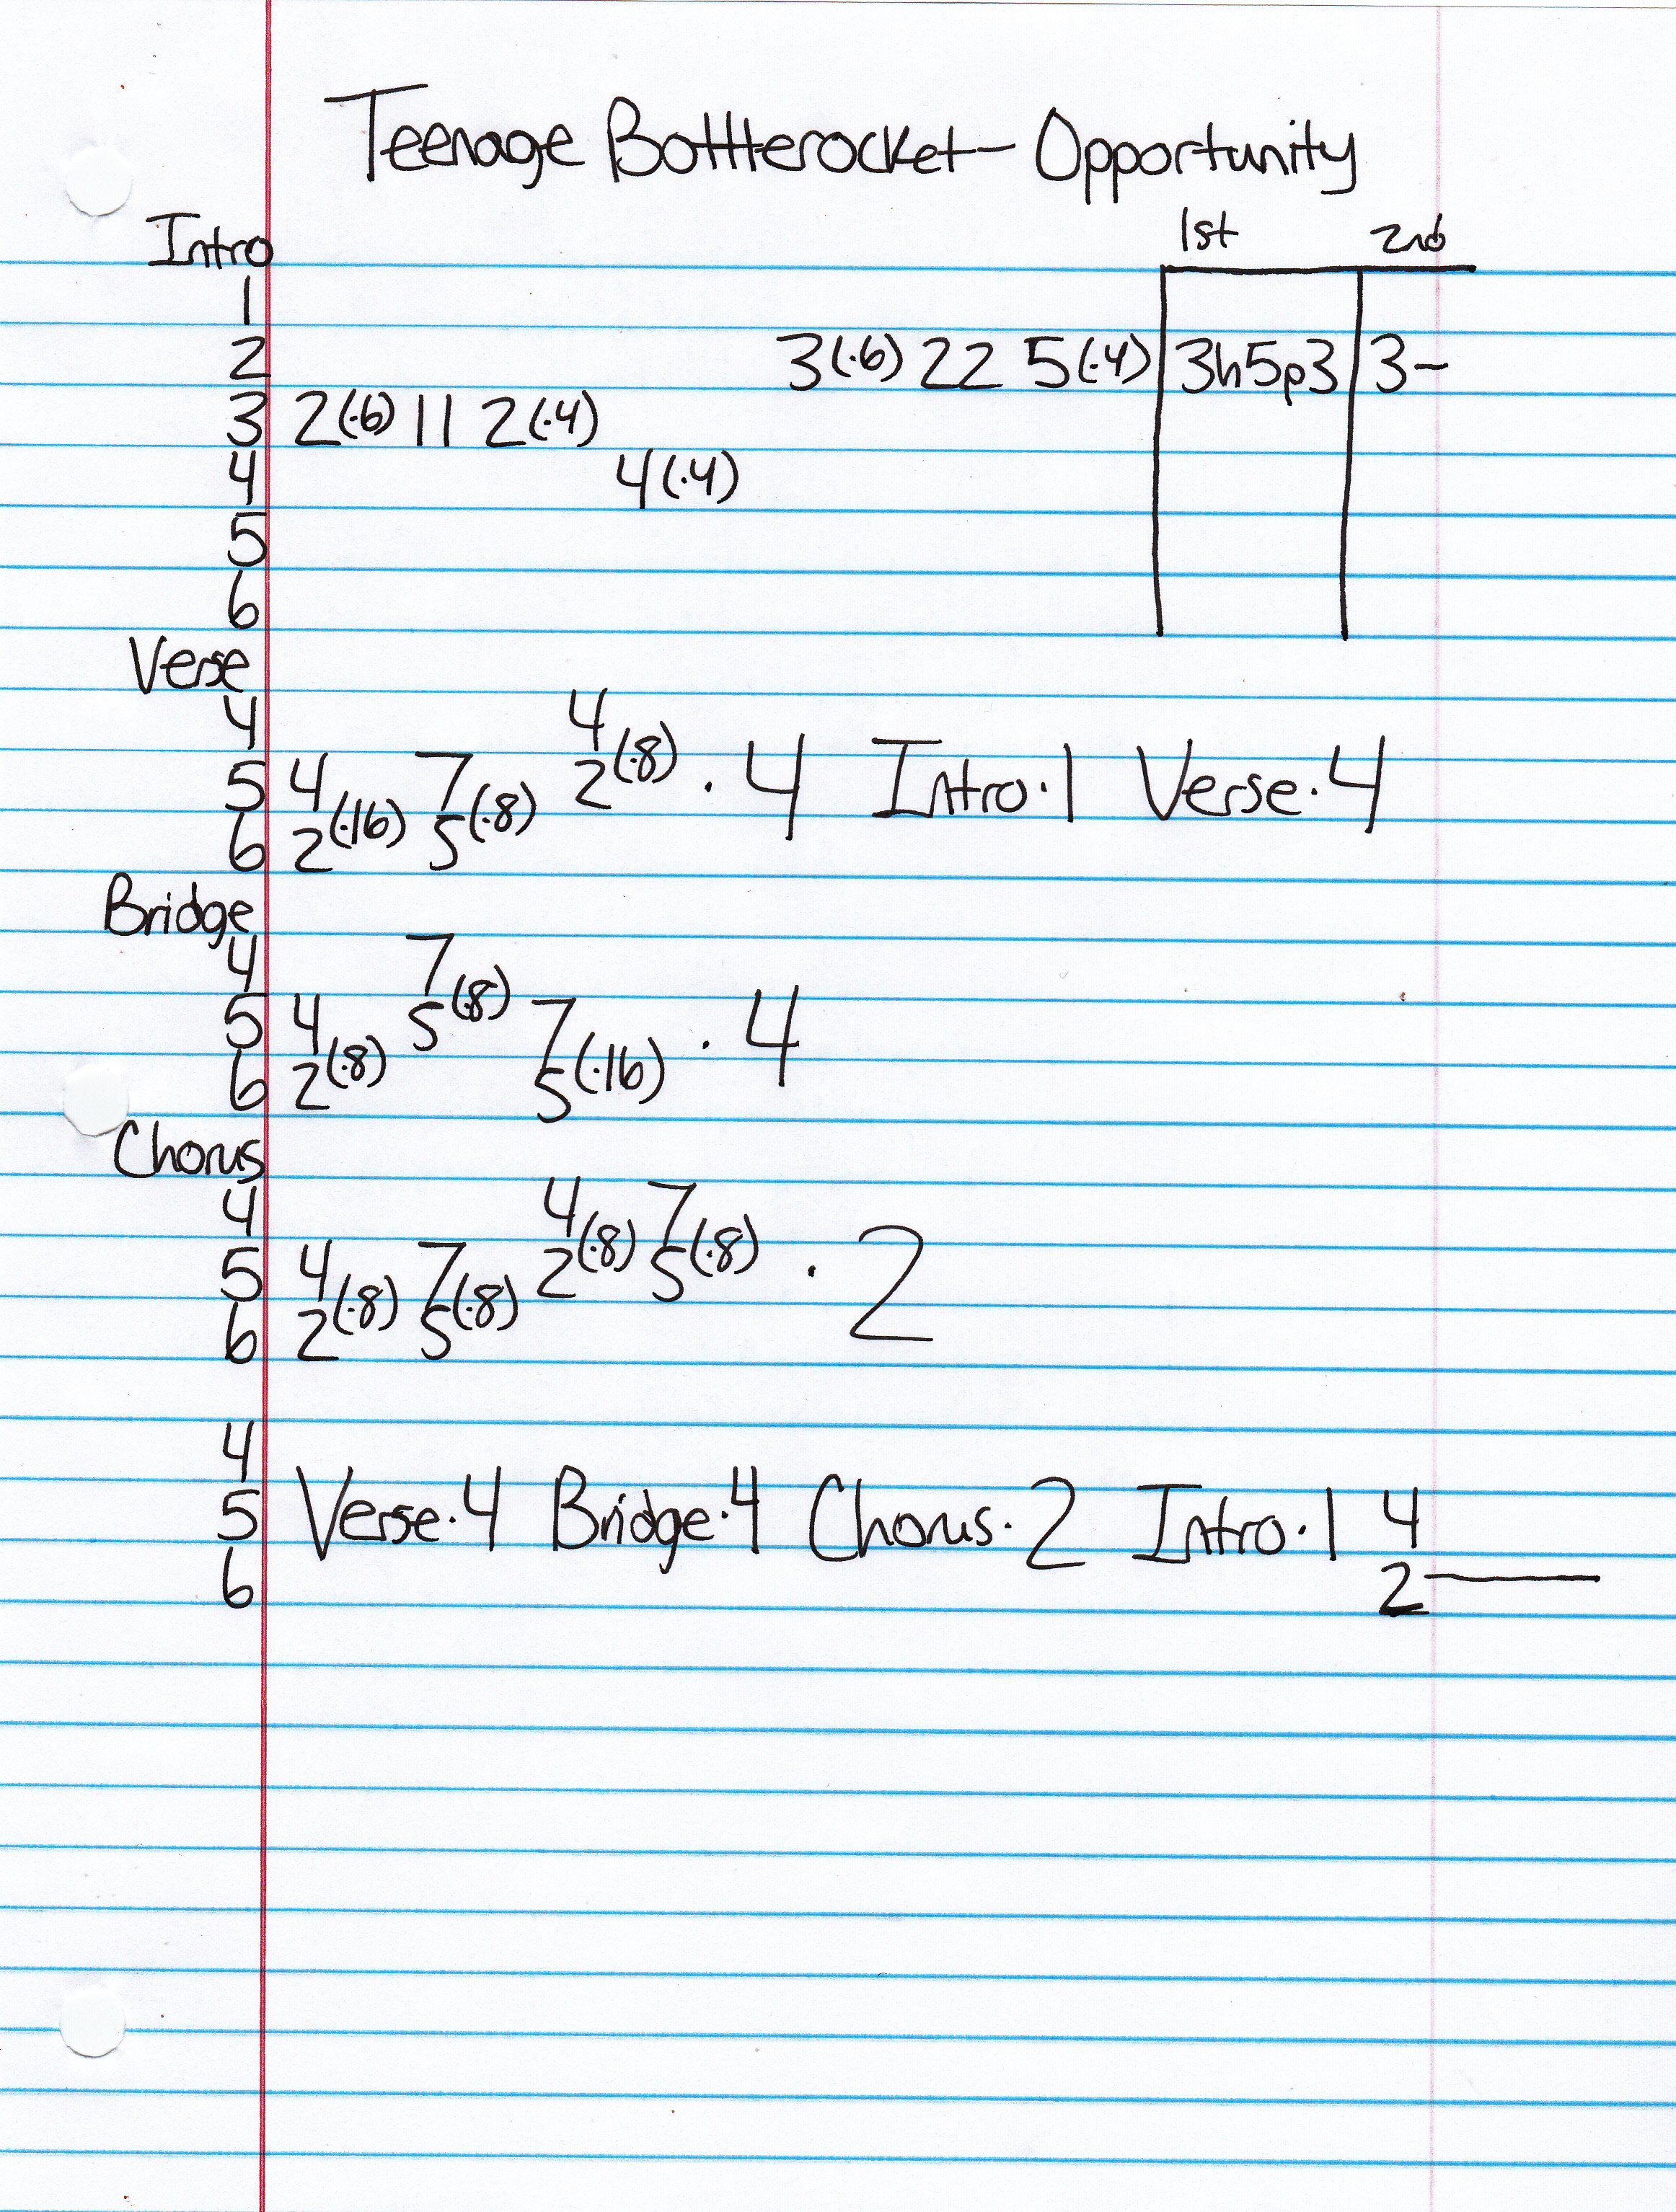 Teenage Bottlerocket - Opportunity
1st 2nd
Intro
1
2 3(·6) 22 5(·4) 3h5p3 3-
3 2(·6) 11 2(·4)
4 4(·4)
5
6
Verse
4 4
5 4 7 2(·8) · 4 Intro·1 Verse·4
6 2(·16) 5(·8)
Bridge
4 7
5 4 5(·8) 7 · 4
6 2(·8) 5(·16)
Chorus
4 4 7
5 4 7 2(·8) 5(·8) · 2
6 2(·8) 5(·8)
4
5 Verse·4 Bridge·4 Chorus·2 Intro·1 4
6 2—